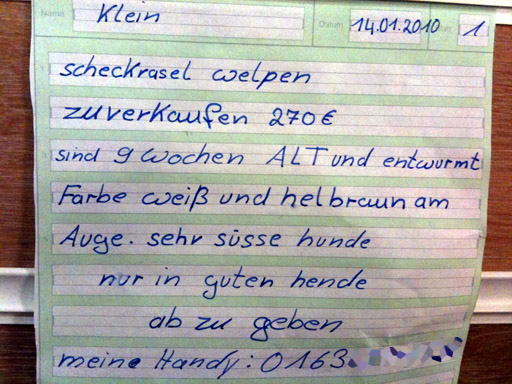 Name Klein Datum 14.01.2010 1
scheckrasel welpen
zuverkaufen 270€
sind 9 wochen ALT und entwurmt
Farbe weiß und helbraun am
Auge. sehr süsse hunde
nur in guten hende
ab zu geben
meine Handy: 0163